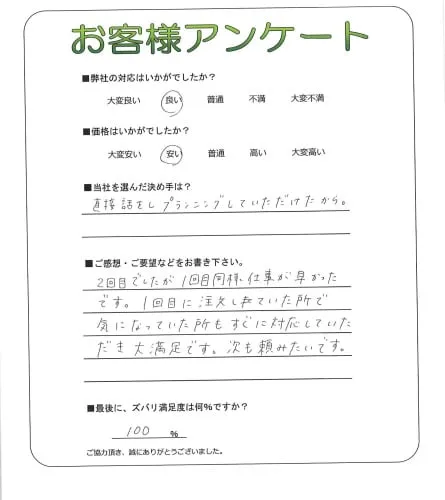 お客様アンケート
■弊社の対応はいかがでしたか?
大変良い 良い 普通 不満 大変不満
■価格はいかがでしたか?
大変安い 安い 普通 高い 大変高い
■当社を選んだ決め手は?
直接話をしプランニングしていただけたから。
■ご感想・ご要望などをお書き下さい。
2回目でしたが1回目同様、仕事が早かった
です。1回目に注文し
ていた所で
気になっていた所もすぐに対応していた
だき大満足です。次も頼みたいです。
■最後に、ズバリ満足度は何%ですか?
100 %
ご協力頂き、誠にありがとうございました。